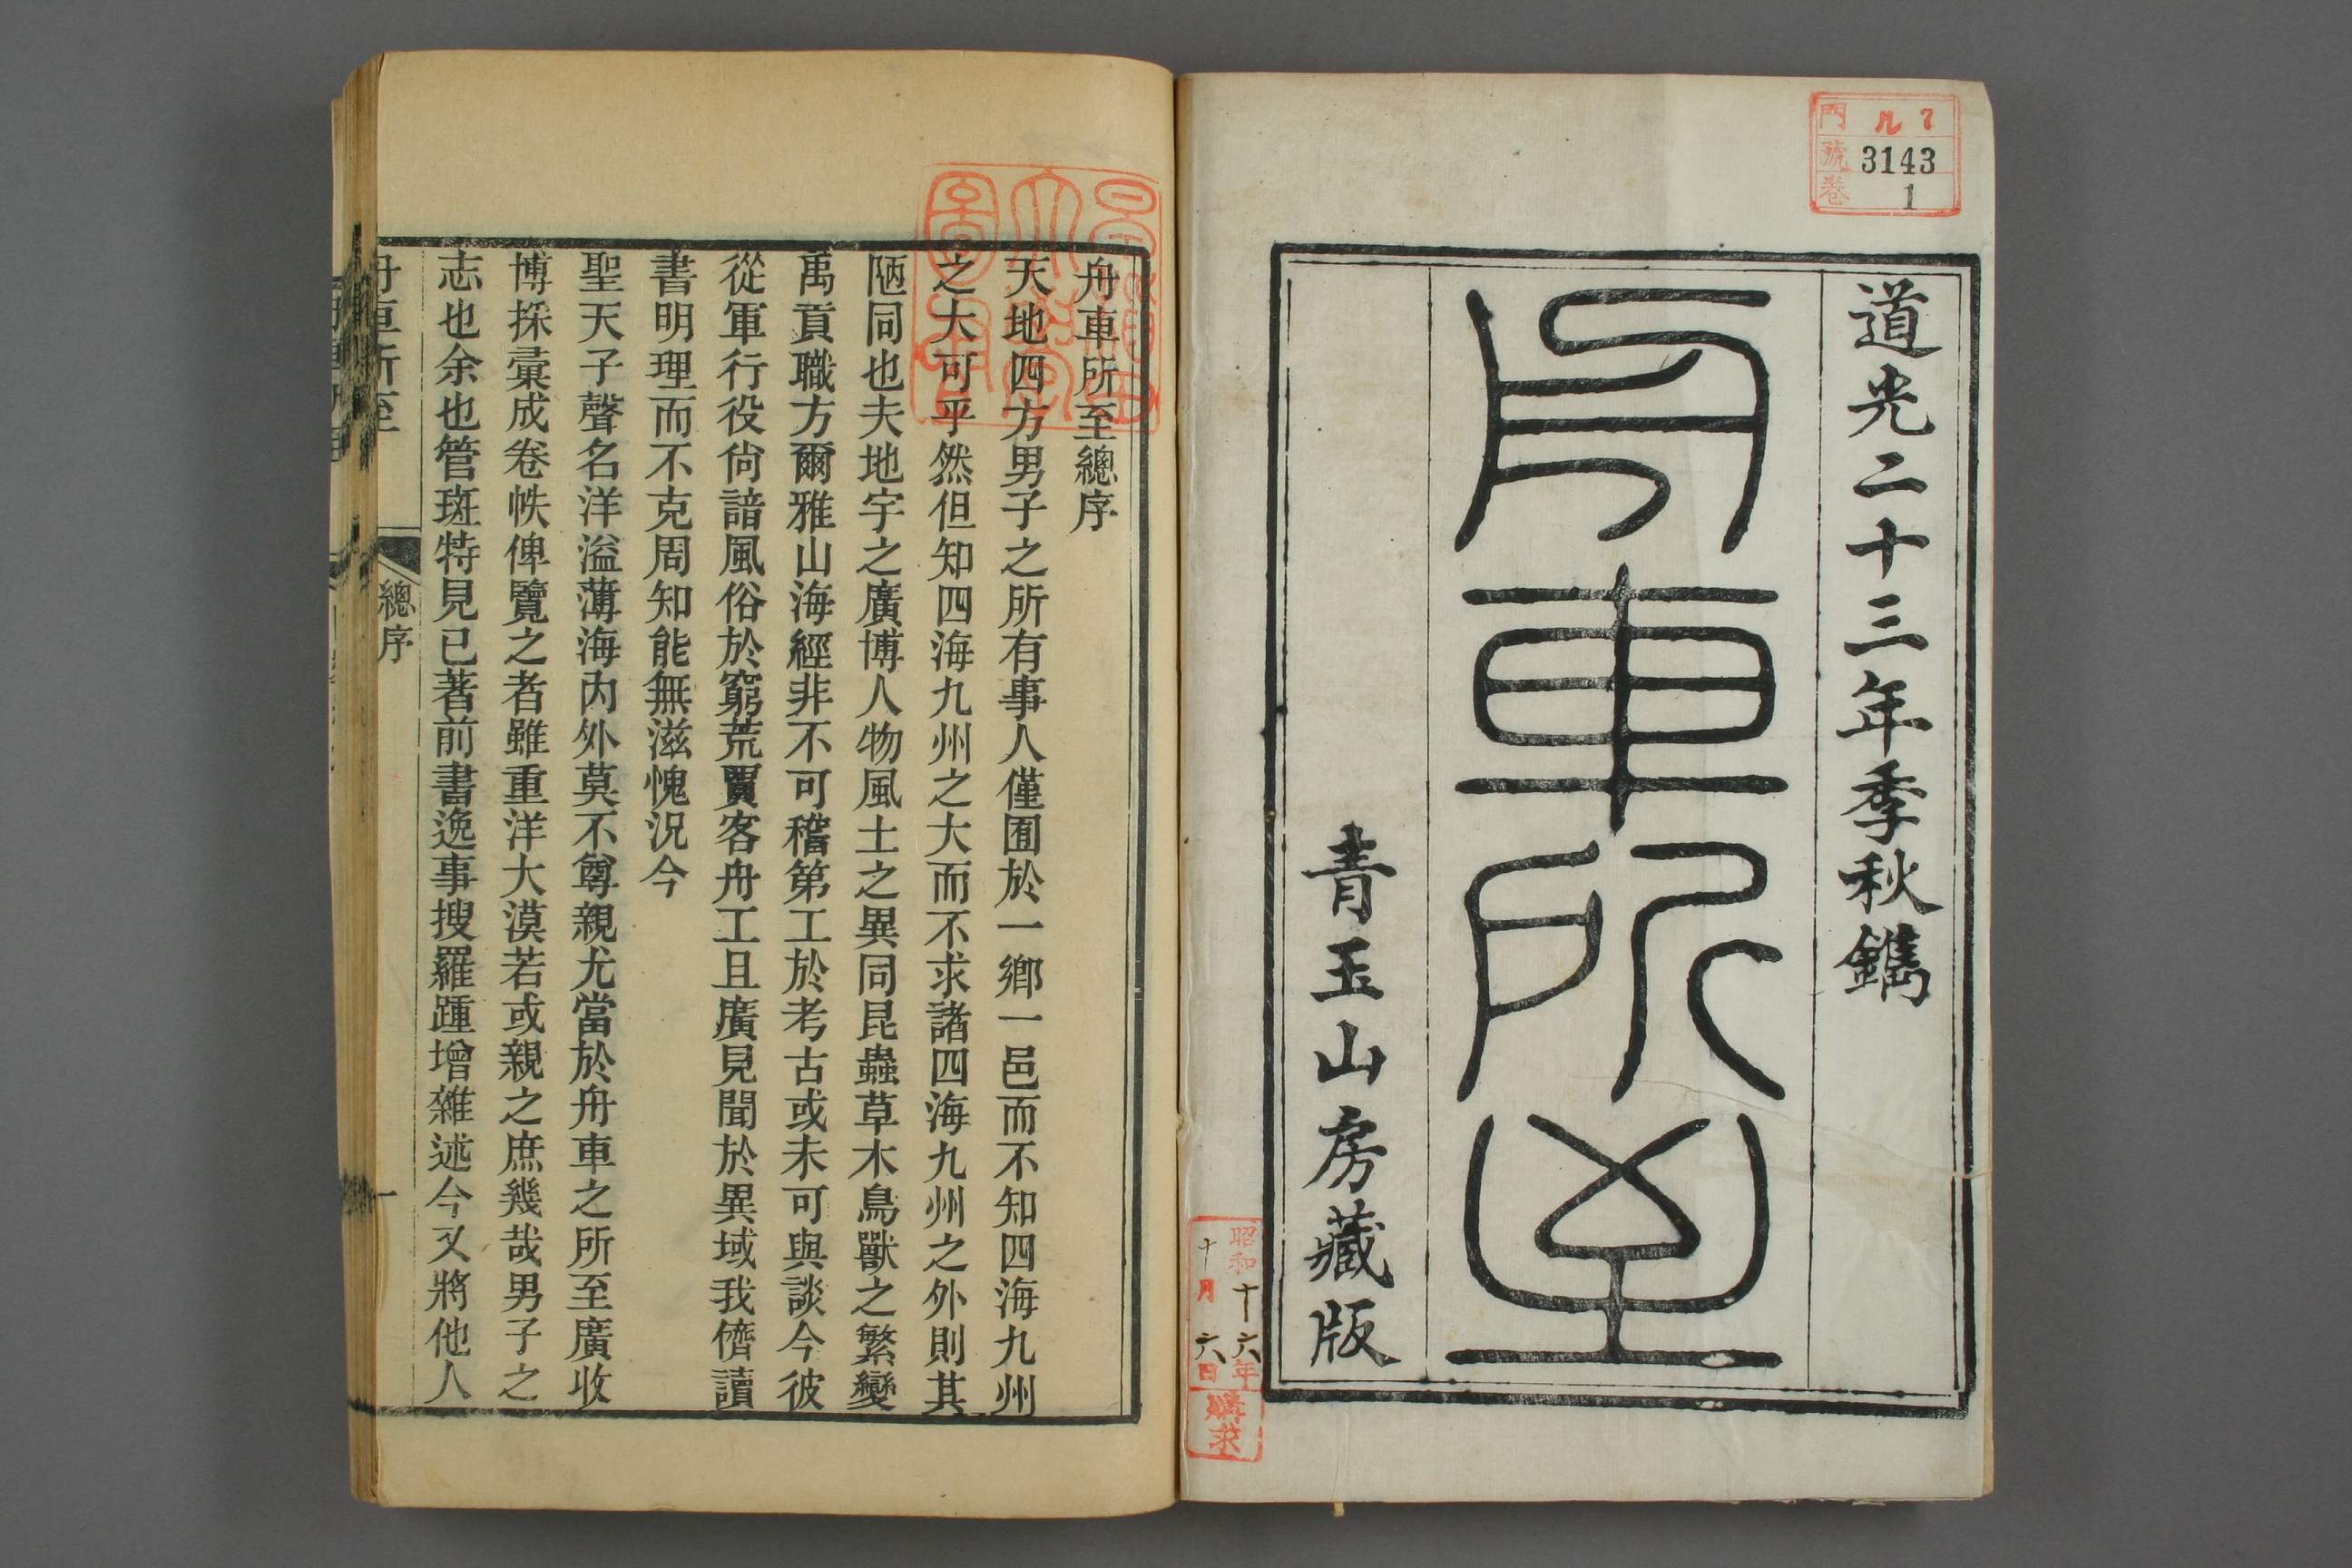 門 ル 7
號 3143
卷 1
道光二十三年季秋鐫
舟車所至
青玉山房藏版
昭和十六年
十月六日
購求
舟車所至總序
天地四方男子之所有事人僅囿於一鄉一邑而不知四海九州
之大可乎然但知四海九州之大而不求諸四海九州之外則其
陋同也夫地宇之廣博人物風土之異同昆蟲草木鳥獸之繁變
禹貢職方爾雅山海經非不可稽第工於考古或未可與談今彼
從軍行役尙諳風俗於窮荒賈客舟工且廣見聞於異域我儕讀
書明理而不克周知能無滋愧況今
聖天子聲名洋溢薄海內外莫不尊親尤當於舟車之所至廣收
博採彙成卷帙俾覽之者雖重洋大漠若或親之庶幾哉男子之
志也余也管斑特見已著前書逸事搜羅踵增雜述今又將他人
舟車所至 總序 一